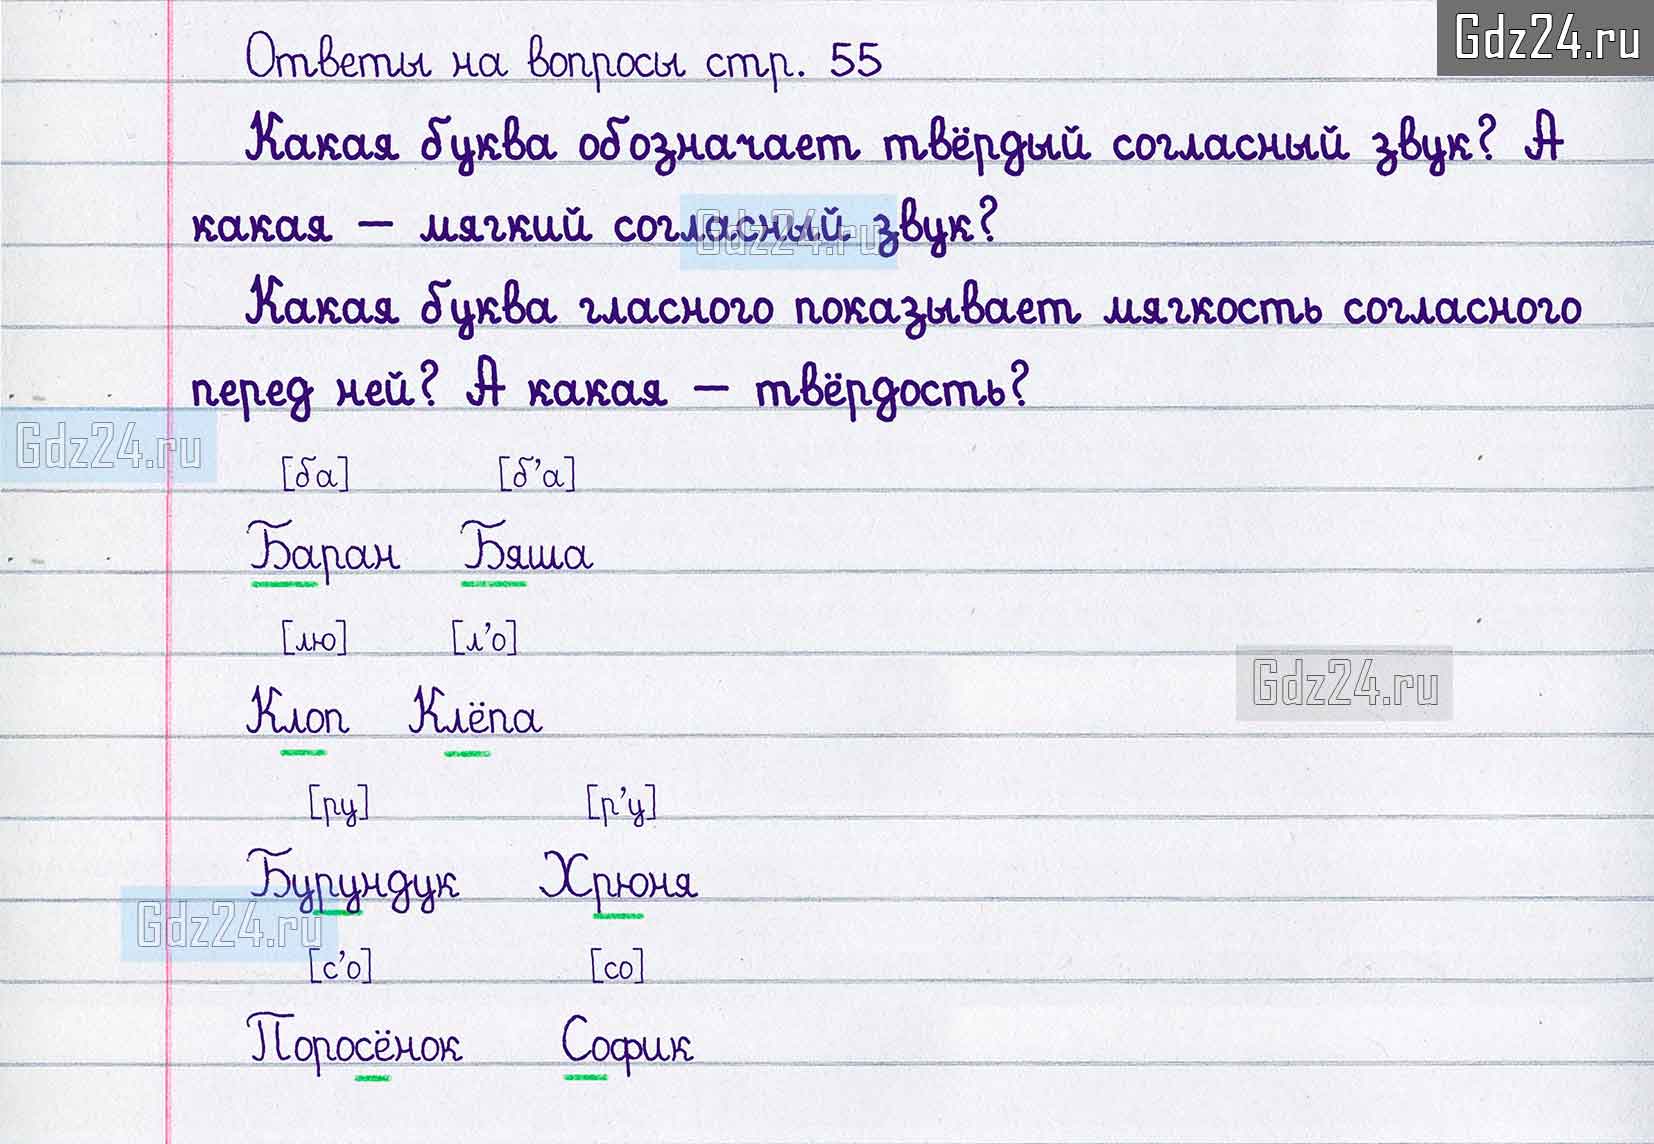 Gdz24.ru
Ответы на вопросы стр. 55
Какая буква обозначает твёрдый согласный звук? А
какая — мягкий согласный звук?
Gdz24.ru
Какая буква гласного показывает мягкость согласного
перед ней? А какая — твёрдость?
Gdz24.ru
[ба] [б’а]
Баран Бяша
[лю] [л’о]
Gdz24.ru
Клоп Клёпа
[ру] [р’у]
Бурундук Хрюня
Gdz24.ru
[с’о] [со]
Поросёнок Софик